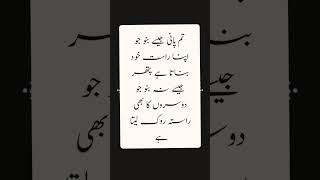 تم پانی جیسے بنو جو
اپنا راستہ خود
بناتا ہے پتھر
جیسے نہ بنو جو
دوسروں کا بھی
راستہ روک لیتا
ہے